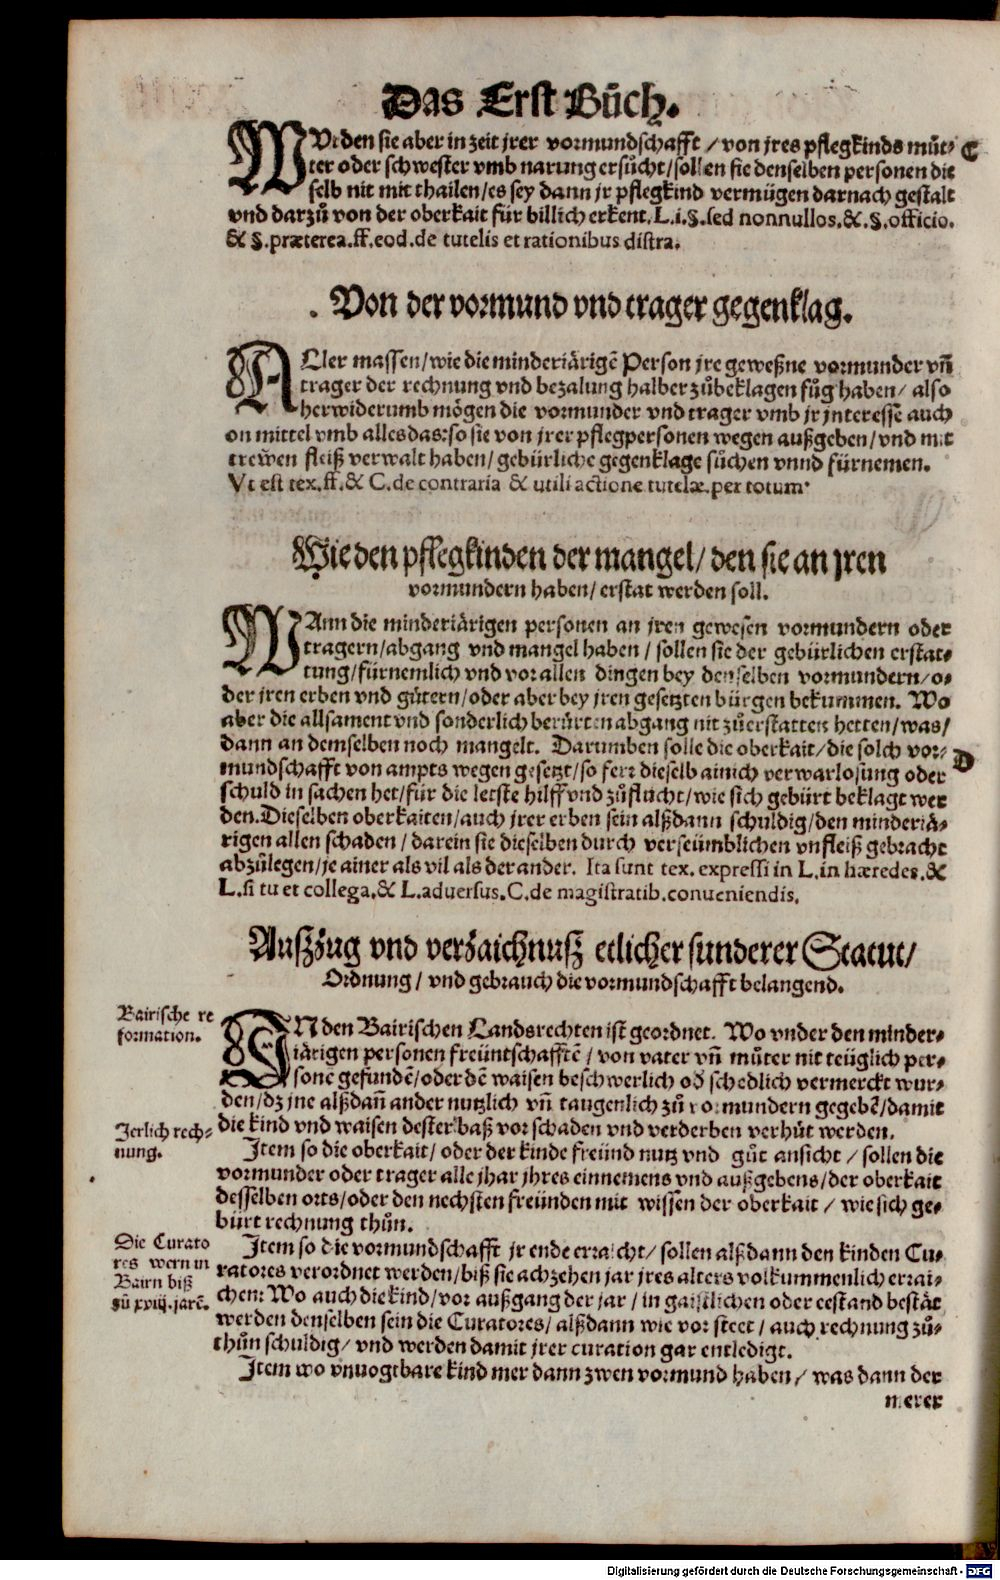 Das Erst Bůch.
WVrden sie aber in zeit jrer vormundschafft / von jres pflegkinds mů-
ter oder schwester vmb narung ersůcht / sollen sie denselben personen die
selb nit mit thailen / es sey dann jr pflegkind vermügen darnach gestalt
vnd darzů von der oberkait für billich erkent. L.i.§.sed nonnullos.&.§.officio.
& §.præterea.ff.eod.de tutelis et rationibus distra.
C
Von der vormund vnd trager gegenklag.
ALler massen / wie die minderjärigẽ Person jre geweßne vormunder vñ
trager der rechnung vnd bezalung halber zůbeklagen fůg haben / also
herwiderumb mögen die vormunder vnd trager vmb jr jnteresse auch
on mittel vmb alles das: so sie von jrer pflegpersonen wegen außgeben / vnd mit
trewen fleiß verwalt haben / gebürliche gegenklage sůchen vnnd fürnemen.
Vt est tex.ff.& C.de contraria & utili actione tutelæ.per totum.
Wie den pflegkinden der mangel / den sie an jren
vormundern haben / erstat werden soll.
WAnn die minderjärigen personen an jren gewesen vormundern oder
tragern / abgang vnd mangel haben / sollen sie der gebürlichen erstat-
tung / fürnemlich vnd vor allen dingen bey denselben vormundern / o-
der jren erben vnd gůtern / oder aber bey jren gesetzten bürgen bekummen. Wo
aber die allsament vnd sonderlich berürten abgang nit zůerstatten hetten / was /
dann an demselben noch mangelt. Darumben solle die oberkait / die solch vor-
mundschafft von ampts wegen gesetzt / so ferr dieselb ainich verwarlosung oder
schuld in sachen het / für die letste hilff vnd zůflucht / wie sich gebürt beklagt wer
den. Dieselben oberkaiten / auch jrer erben sein alßdann schuldig / den minderjä-
rigen allen schaden / darein sie dieselben durch verseümblichen vnfleiß gebracht
abzůlegen / je ainer als vil als der ander. Ita sunt tex. expressi in L.in hæredes.&
L.si tu et collega.& L.aduersus.C.de magistratib.conueniendis.
D
Außzug vnd verzaichnuß etlicher sunderer Statut /
Ordnung / vnd gebrauch die vormundschafft belangend.
Bairische re
formation.
IN den Bairischen Landsrechten ist geordnet. Wo vnder den minder-
järigen personen freüntschafftẽ / von vater vñ můter nit teüglich per-
sonẽ gefundẽ / oder dẽ waisen beschwerlich od schedlich vermerckt wur-
den / dz jne alßdañ ander nutzlich vñ taugenlich zů vormundern gegebẽ / damit
die kind vnd waisen dester baß vor schaden vnd verderben verhůt werden.
Jerlich rech-
nung.
Item so die oberkait / oder der kinde freünd nutz vnd gůt ansicht / sollen die
vormunder oder trager alle jhar jhres einnemens vnd außgebens / der oberkait
desselben orts / oder den nechsten freünden mit wissen der oberkait / wie sich ge-
bürt rechnung thůn.
Die Curato
res wern in
Bairn biß
zů xviij.jarẽ.
Item so die vormundschafft jr ende erraicht / sollen alßdann den kinden Cu-
ratores verordnet werden / biß sie achzehen jar jres alters volkummenlich errai-
chen: Wo auch die kind / vor außgang der jar / in gaistlichen oder eestand bestät
werden denselben sein die Curatores / alßdann wie vor steet / auch rechnung zů-
thůn schuldig / vnd werden damit jrer curation gar entledigt.
Item wo vnuogtbare kind mer dann zwen vormund haben / was dann der
merer
Digitalisierung gefördert durch die Deutsche Forschungsgemeinschaft - DFG